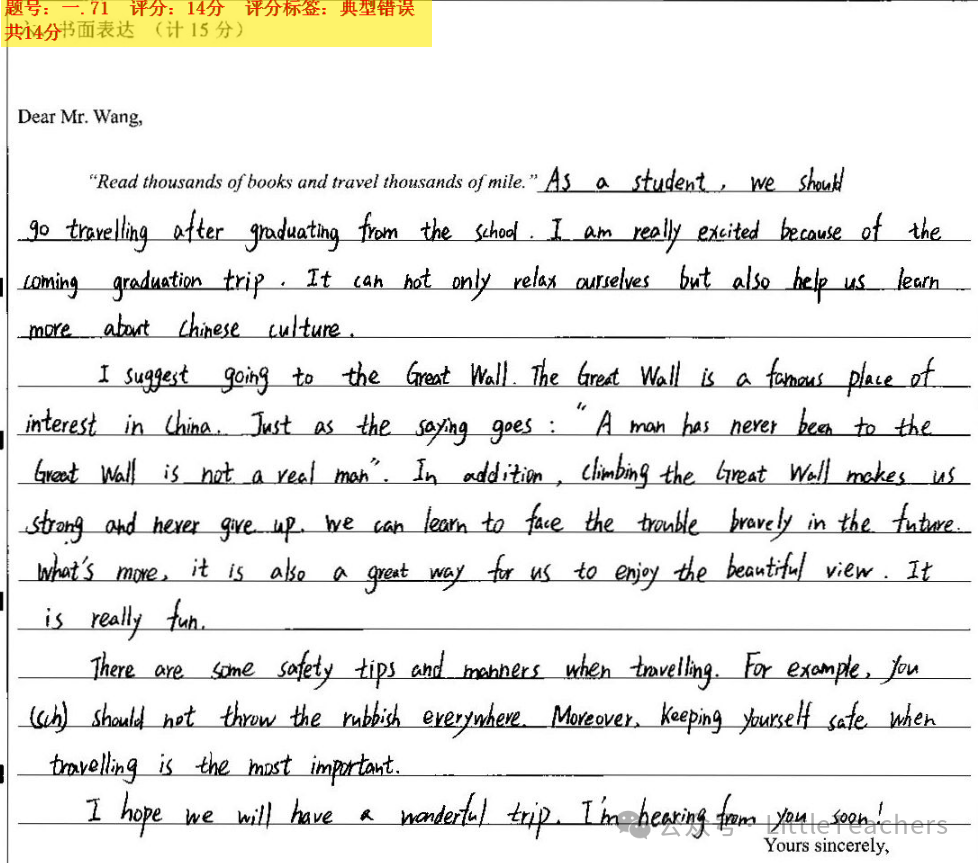 题号：一.71 评分：14分 评分标签：典型错误
共14分 书面表达 （计 15 分）
Dear Mr. Wang,
“Read thousands of books and travel thousands of mile.” As a student, we should
go travelling after graduating from the school. I am really excited because of the
coming graduation trip. It can not only relax ourselves but also help us learn
more about Chinese culture.
I suggest going to the Great Wall. The Great Wall is a famous place of
interest in China. Just as the saying goes: “A man has never been to the
Great Wall is not a real man”. In addition, climbing the Great Wall makes us
strong and never give up. We can learn to face the trouble bravely in the future.
What's more, it is also a great way for us to enjoy the beautiful view. It
is really fun.
There are some safety tips and manners when travelling. For example, you
(sch) should not throw the rubbish everywhere. Moreover, keeping yourself safe when
travelling is the most important.
I hope we will have a wonderful trip. I'm hearing from you soon!
公众号 · LittleTeachers
Yours sincerely,